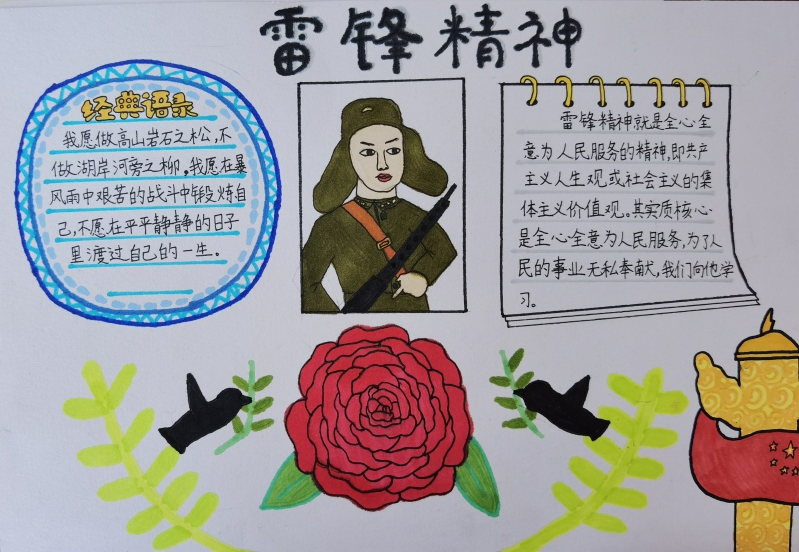 雷锋精神
经典语录
我愿做高山岩石之松,不
做湖岸河旁之柳。我愿在暴
风雨中艰苦的战斗中锻炼自
己,不愿在平平静静的日子
里渡过自己的一生。
雷锋精神就是全心全
意为人民服务的精神,即共产
主义人生观,或社会主义的集
体主义价值观。其实质核心
是全心全意为人民服务,为了人
民的事业无私奉献,我们向他学
习。